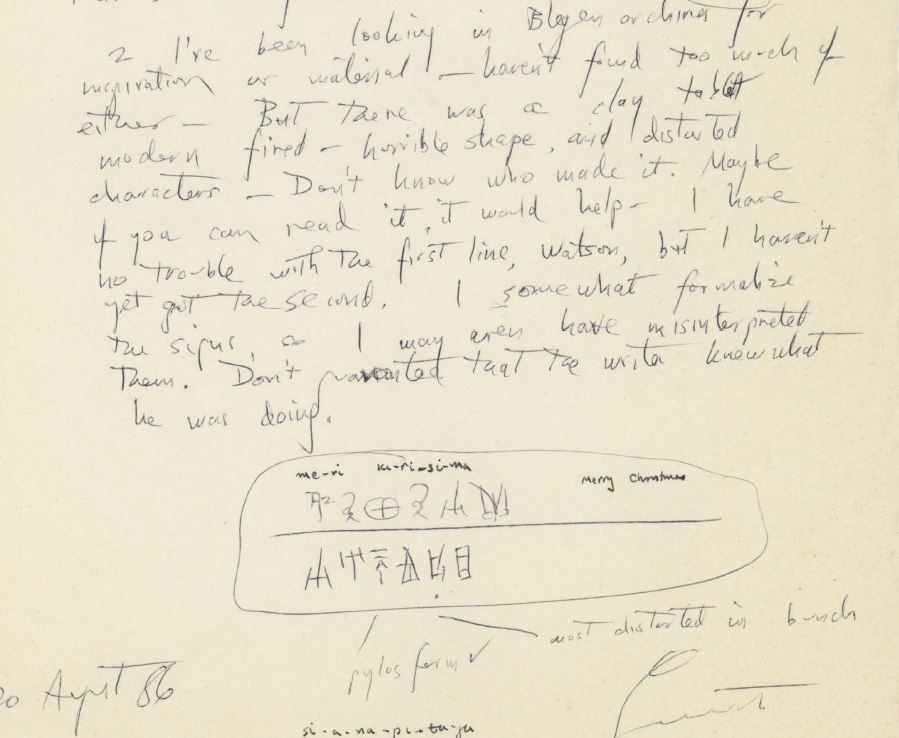 2 I've been looking in Blegen archive for
inspiration or material – haven't found too much of
either – But there was a clay tablet
modern fired – horrible shape, and distorted
characters – Don't know who made it. Maybe
if you can read it, it would help – I have
no trouble with the first line, Watson, but I haven't
yet got the second. I somewhat formalize
the signs, so I may even have misinterpreted
them. Don't that the writer knew what
he was doing.
me-ri ku-ri-si-ma Merry Christmas
𐀕𐀪𐀓𐀪𐀯𐀔
𐀯𐀀𐀙𐀠
most distorted in bunch
pylos form
20 August 86
si-a-na-pi-ta-ja